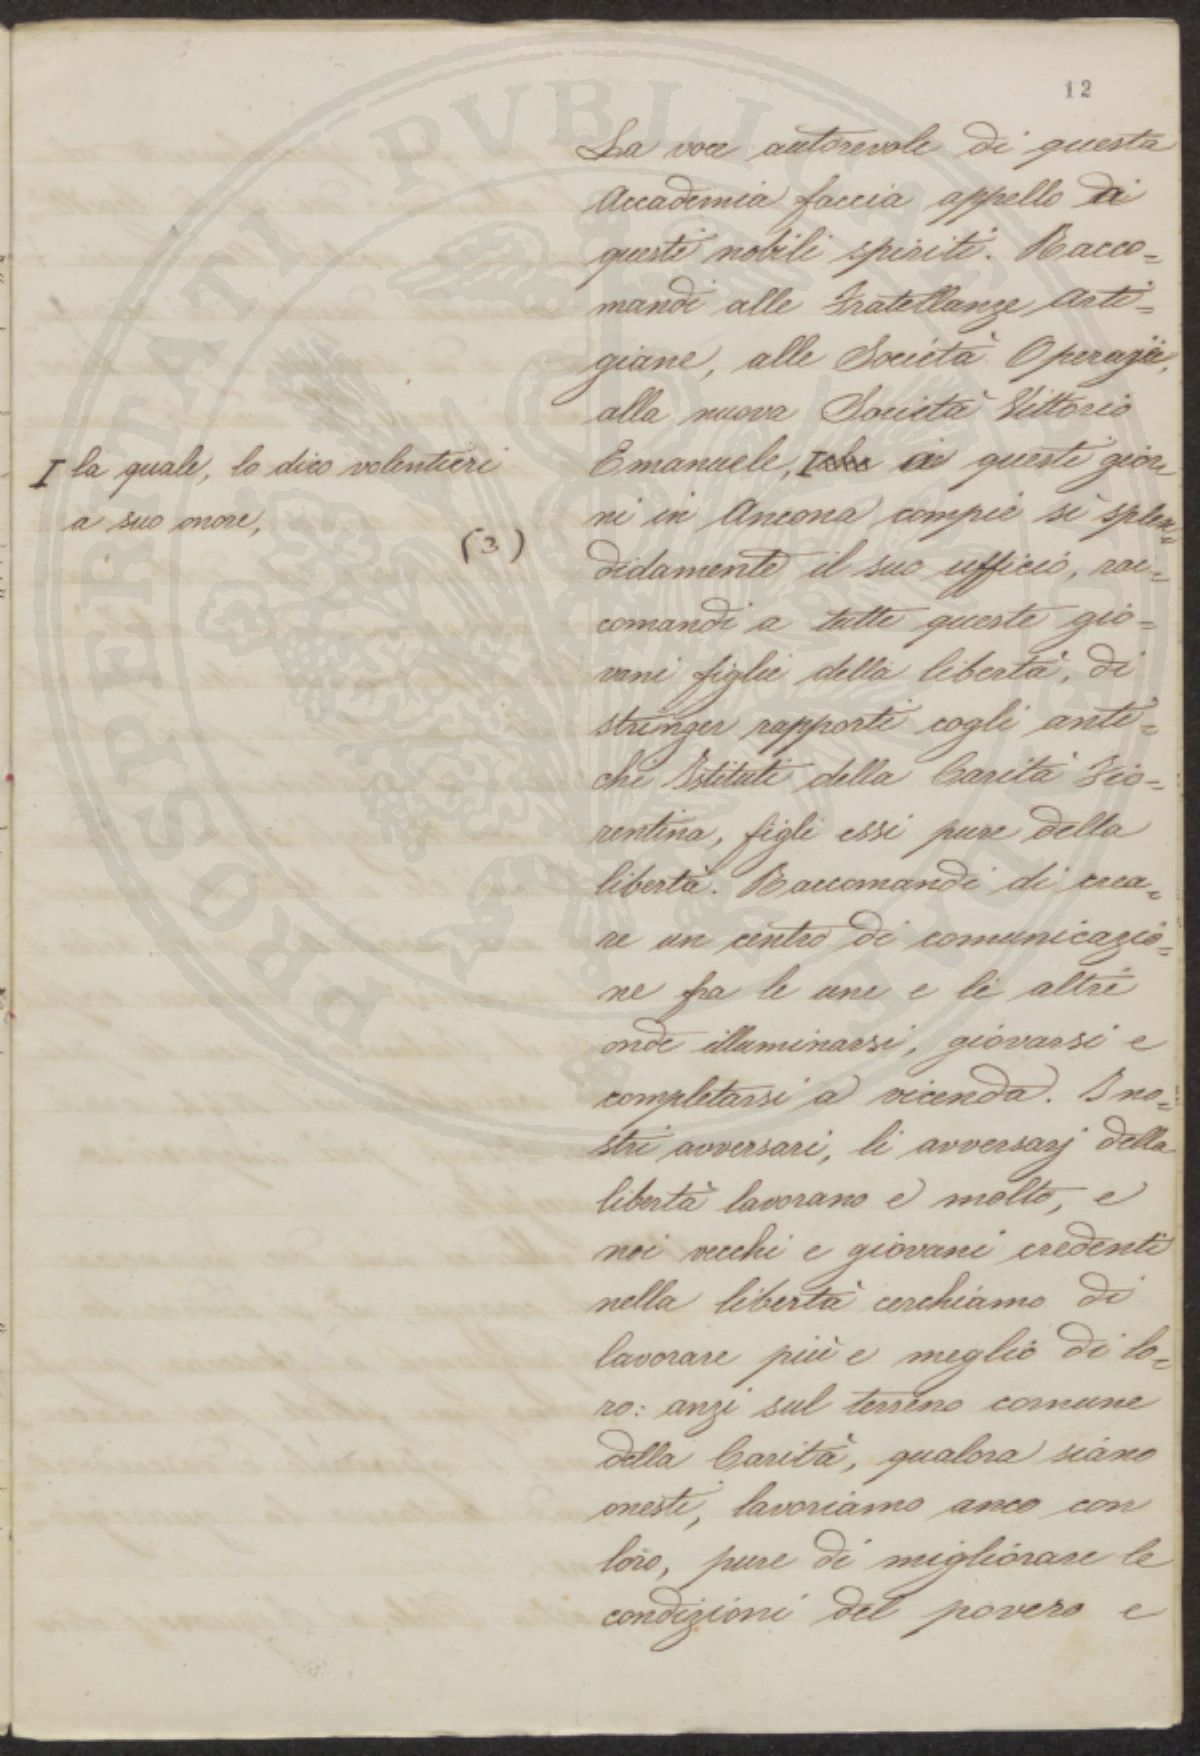 12
La voce autorevole di questa
Accademia faccia appello ai
questi nobili spiriti. Racco=
mandi alle Fratellanze Arti=
giane, alle Società Operaje,
alla nuova Società Vittorio
I la quale, lo dico volentieri
a suo onore,
(3)
Emanuele, I che ai questi gior=
ni in Ancona compiè sì splen=
didamente il suo ufficio, rac=
comandi a tutte queste gio=
vani figlie della libertà, di
stringer rapporti cogli anti=
chi Istituti della Carità Fio=
rentina, figli essi pure della
libertà. Raccomandi di crea=
re un centro di comunicazio=
ne fra le une e li altri
onde illuminarsi, giovarsi e
completarsi a vicenda. I no=
stri avversari, li avversarj della
libertà lavorano e molto, e
noi vecchi e giovani credenti
nella libertà cerchiamo di
lavorare più e meglio di lo=
ro: anzi sul terreno comune
della Carità, qualora siano
onesti, lavoriamo anco con
loro, pure di migliorare le
condizioni del povero e
PROSPERITATI PVBLICAE